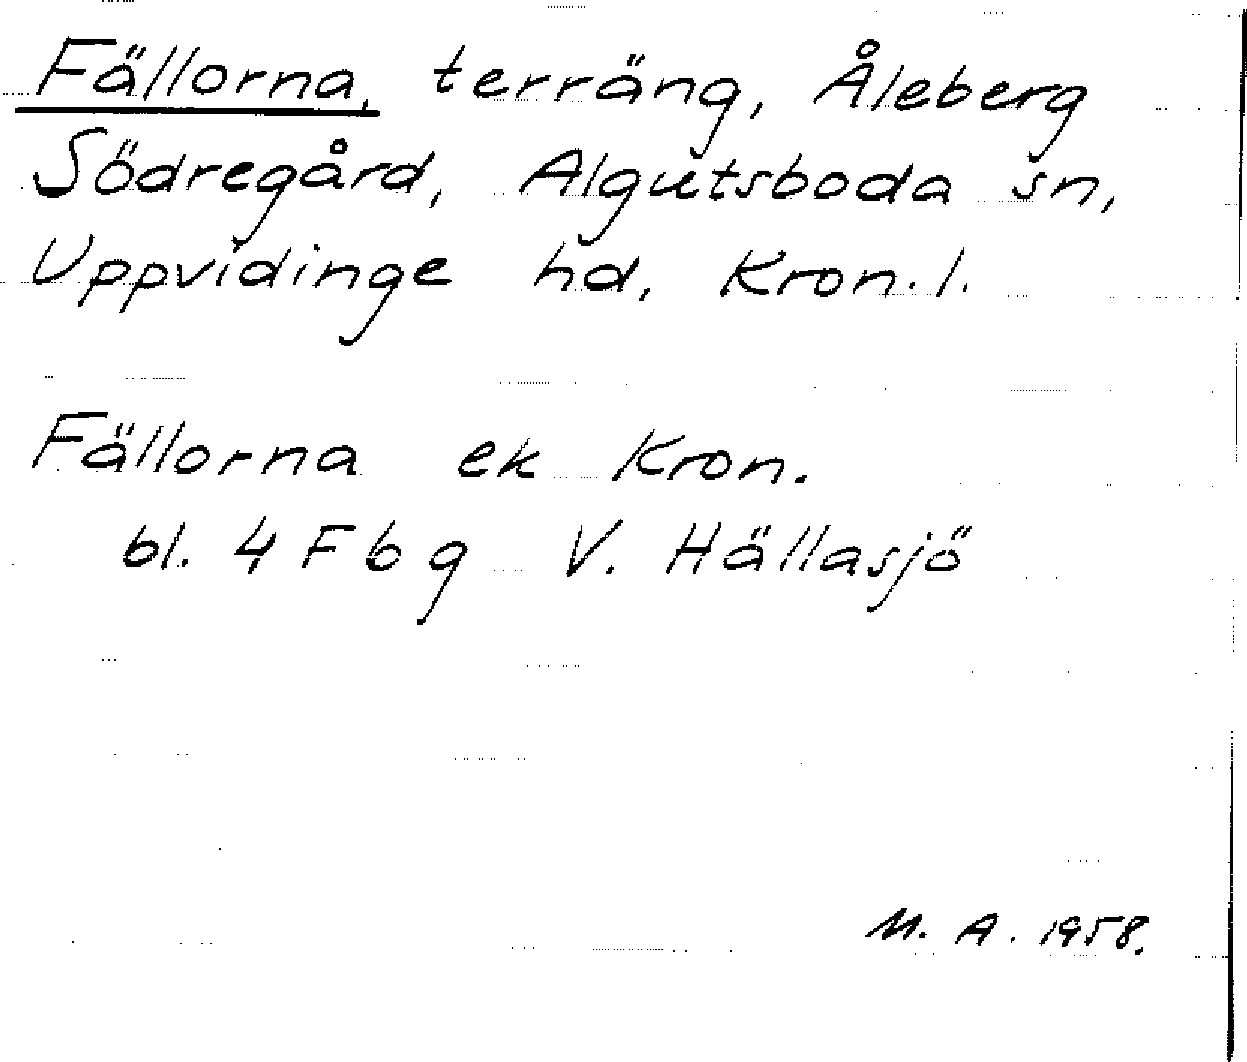 Fällorna, terräng, Åleberg
Södregård, Algutsboda sn,
Uppvidinge hd, Kron. l.
Fällorna ek Kron.
bl. 4 F 6 g V. Hällasjö
M. A. 1958.